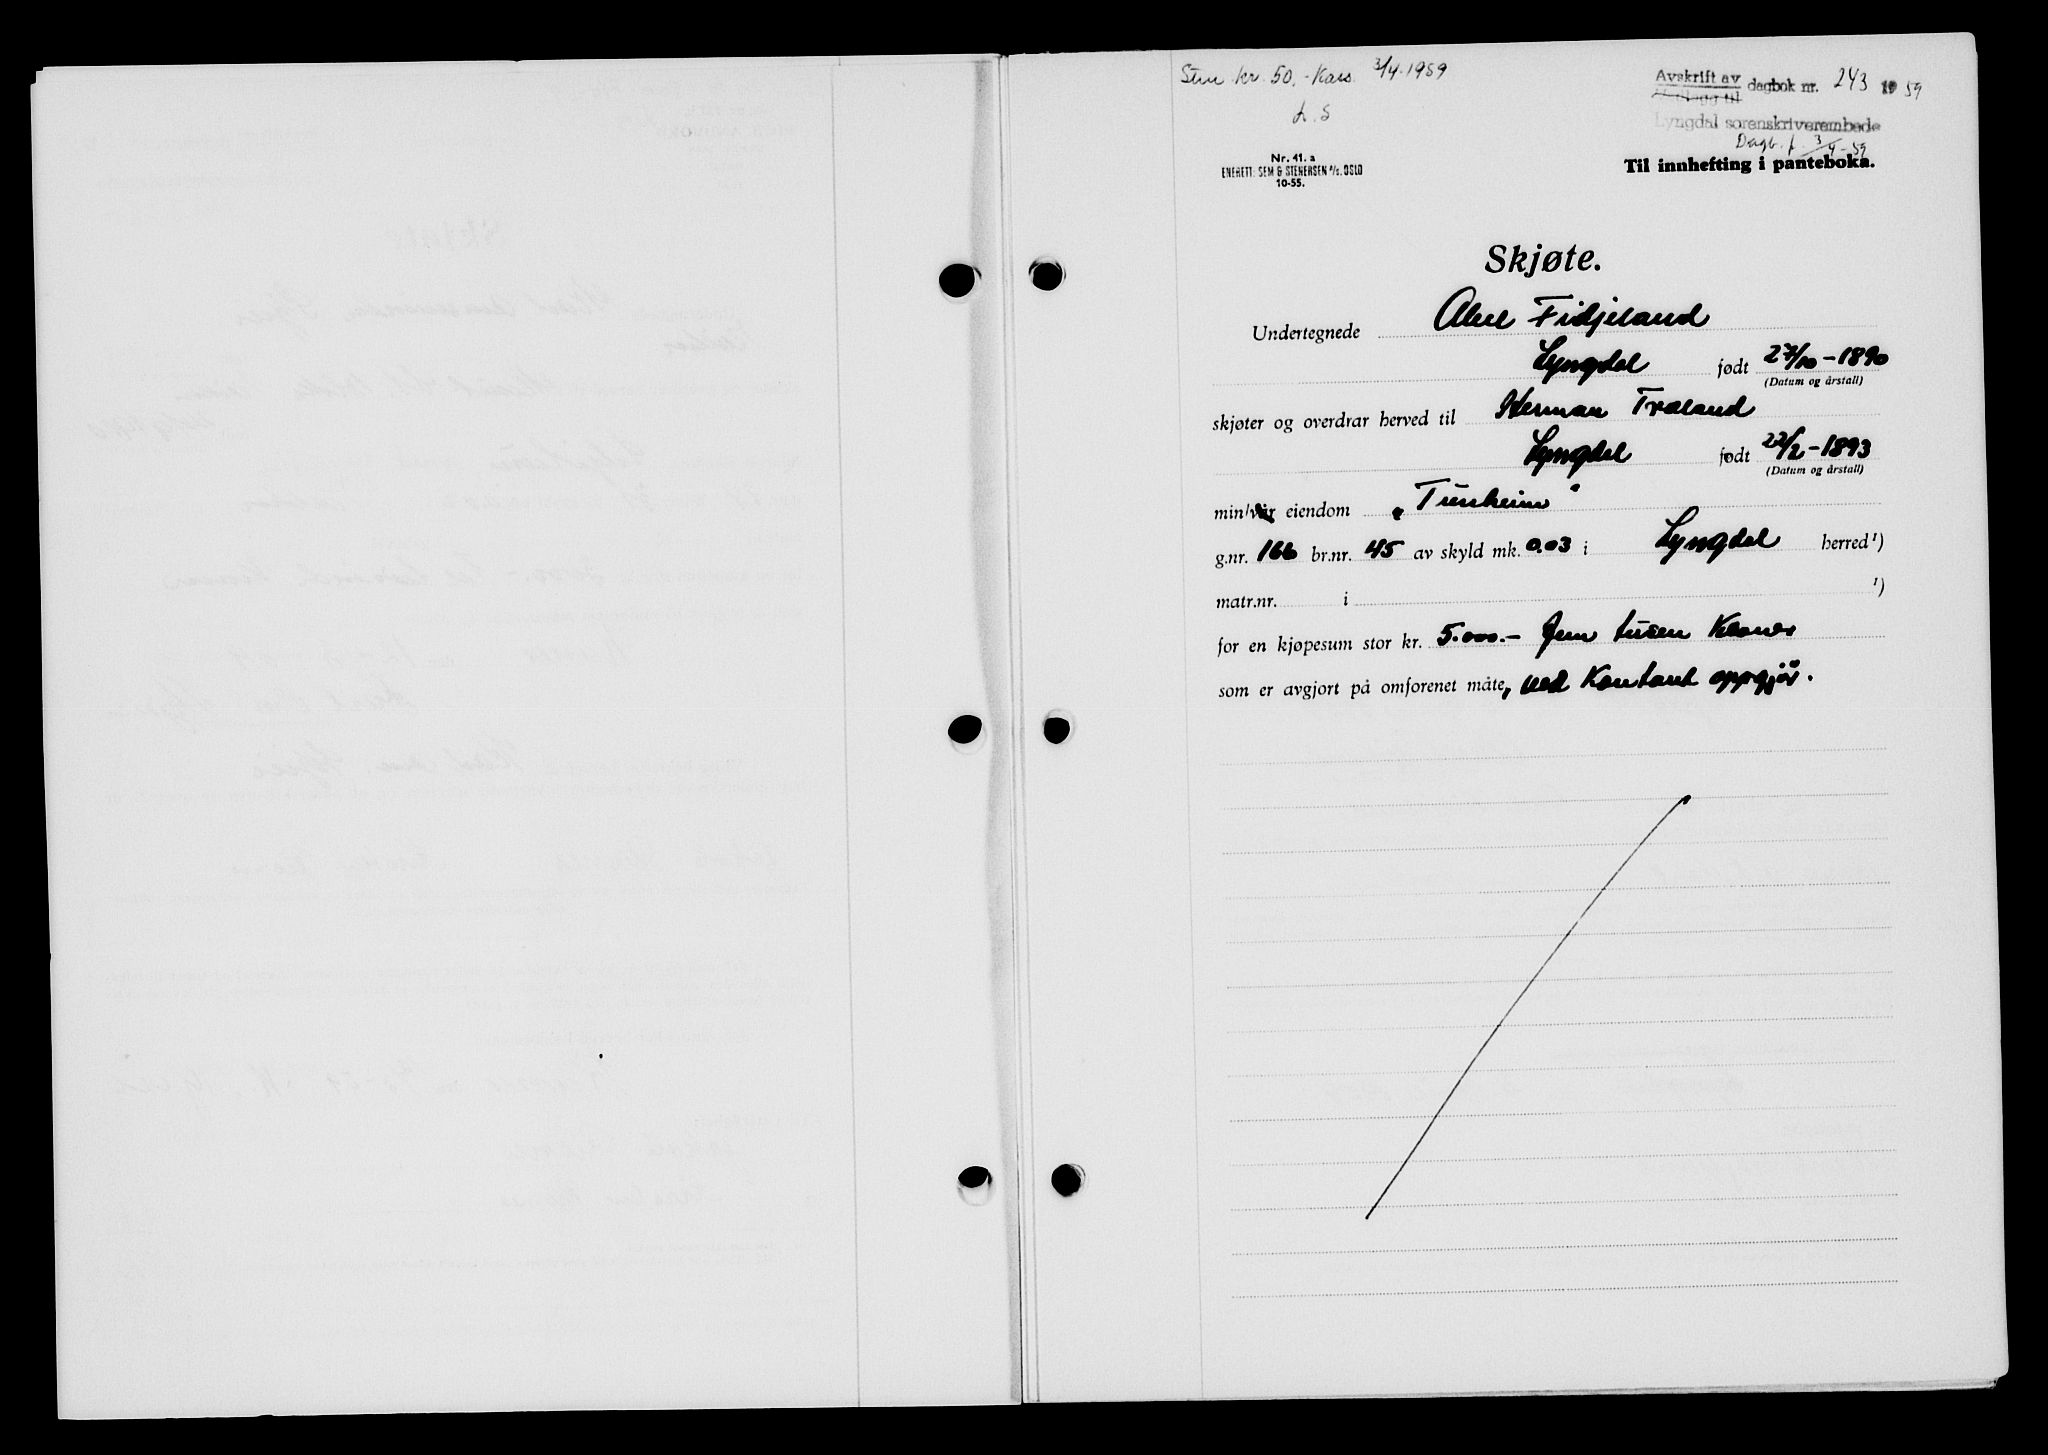 Stm kr. 50,- Kass. 3/4-1959
L. S
Avskrift av dagbok nr. 243 1959
Vedlegg til
Lyngdal sorenskriverembede
Dagb. f. 3/4-59
Nr. 41. a
ENERETT: SEM & STENERSEN A/S, OSLO
10-55.
Til innhefting i panteboka.
Skjøte.
Undertegnede Fidjeland
Lyngdal født 27/10-1890
(Datum og årstall)
skjøter og overdrar herved til Herman Træland
Lyngdal født 22/2-1893
(Datum og årstall)
min/vår eiendom „Tunheim"
g.nr. 166 br.nr. 45 av skyld mk. 0.03 i Lyngdal herred ¹)
matr.nr. i ¹)
for en kjøpesum stor kr. 5.000.- Fem tusen Kroner
som er avgjort på omforenet måte, ved Kontant oppgjör.